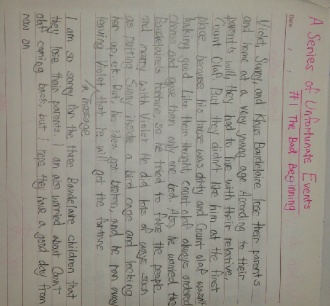 A Series of Unfortunate Events
#1 The Bad Beginning
Date:
Violet, Sunny and Klaus Baudelaire lose their parents
and home at a very young age. According to their
parents will, they had to live with their relative,
Count Olaf. But they didn't like him at the first
place because his house was dirty and Count Olaf wasn't
looking good. Like them thought, Count Olaf always
chores and gave them only one bed. Also, he wanted the
Baudelaire's fortune so he tried to fake the people
and marry with Violet. He did lots of ways such
as putting Sunny inside a bird cage and locking
her up at But, his idea got and he ran away
leaving Violet that he will get the fortune
message
I am so sorry for the three Baudelaire children that
they lose their parents. I am also worried about Count
olaf coming back, but I hope they have a good day from
now on.